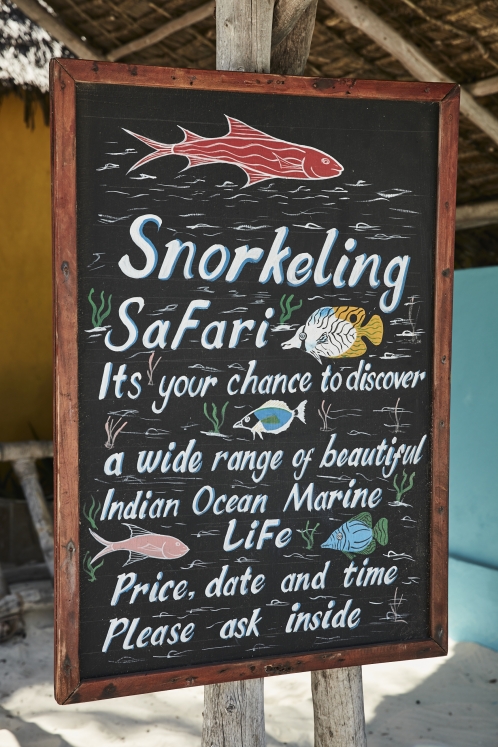 Snorkeling
SaFari
Its your chance to discover
a wide range of beautiful
Indian Ocean Marine
LiFe
Price, date and time
Please ask inside